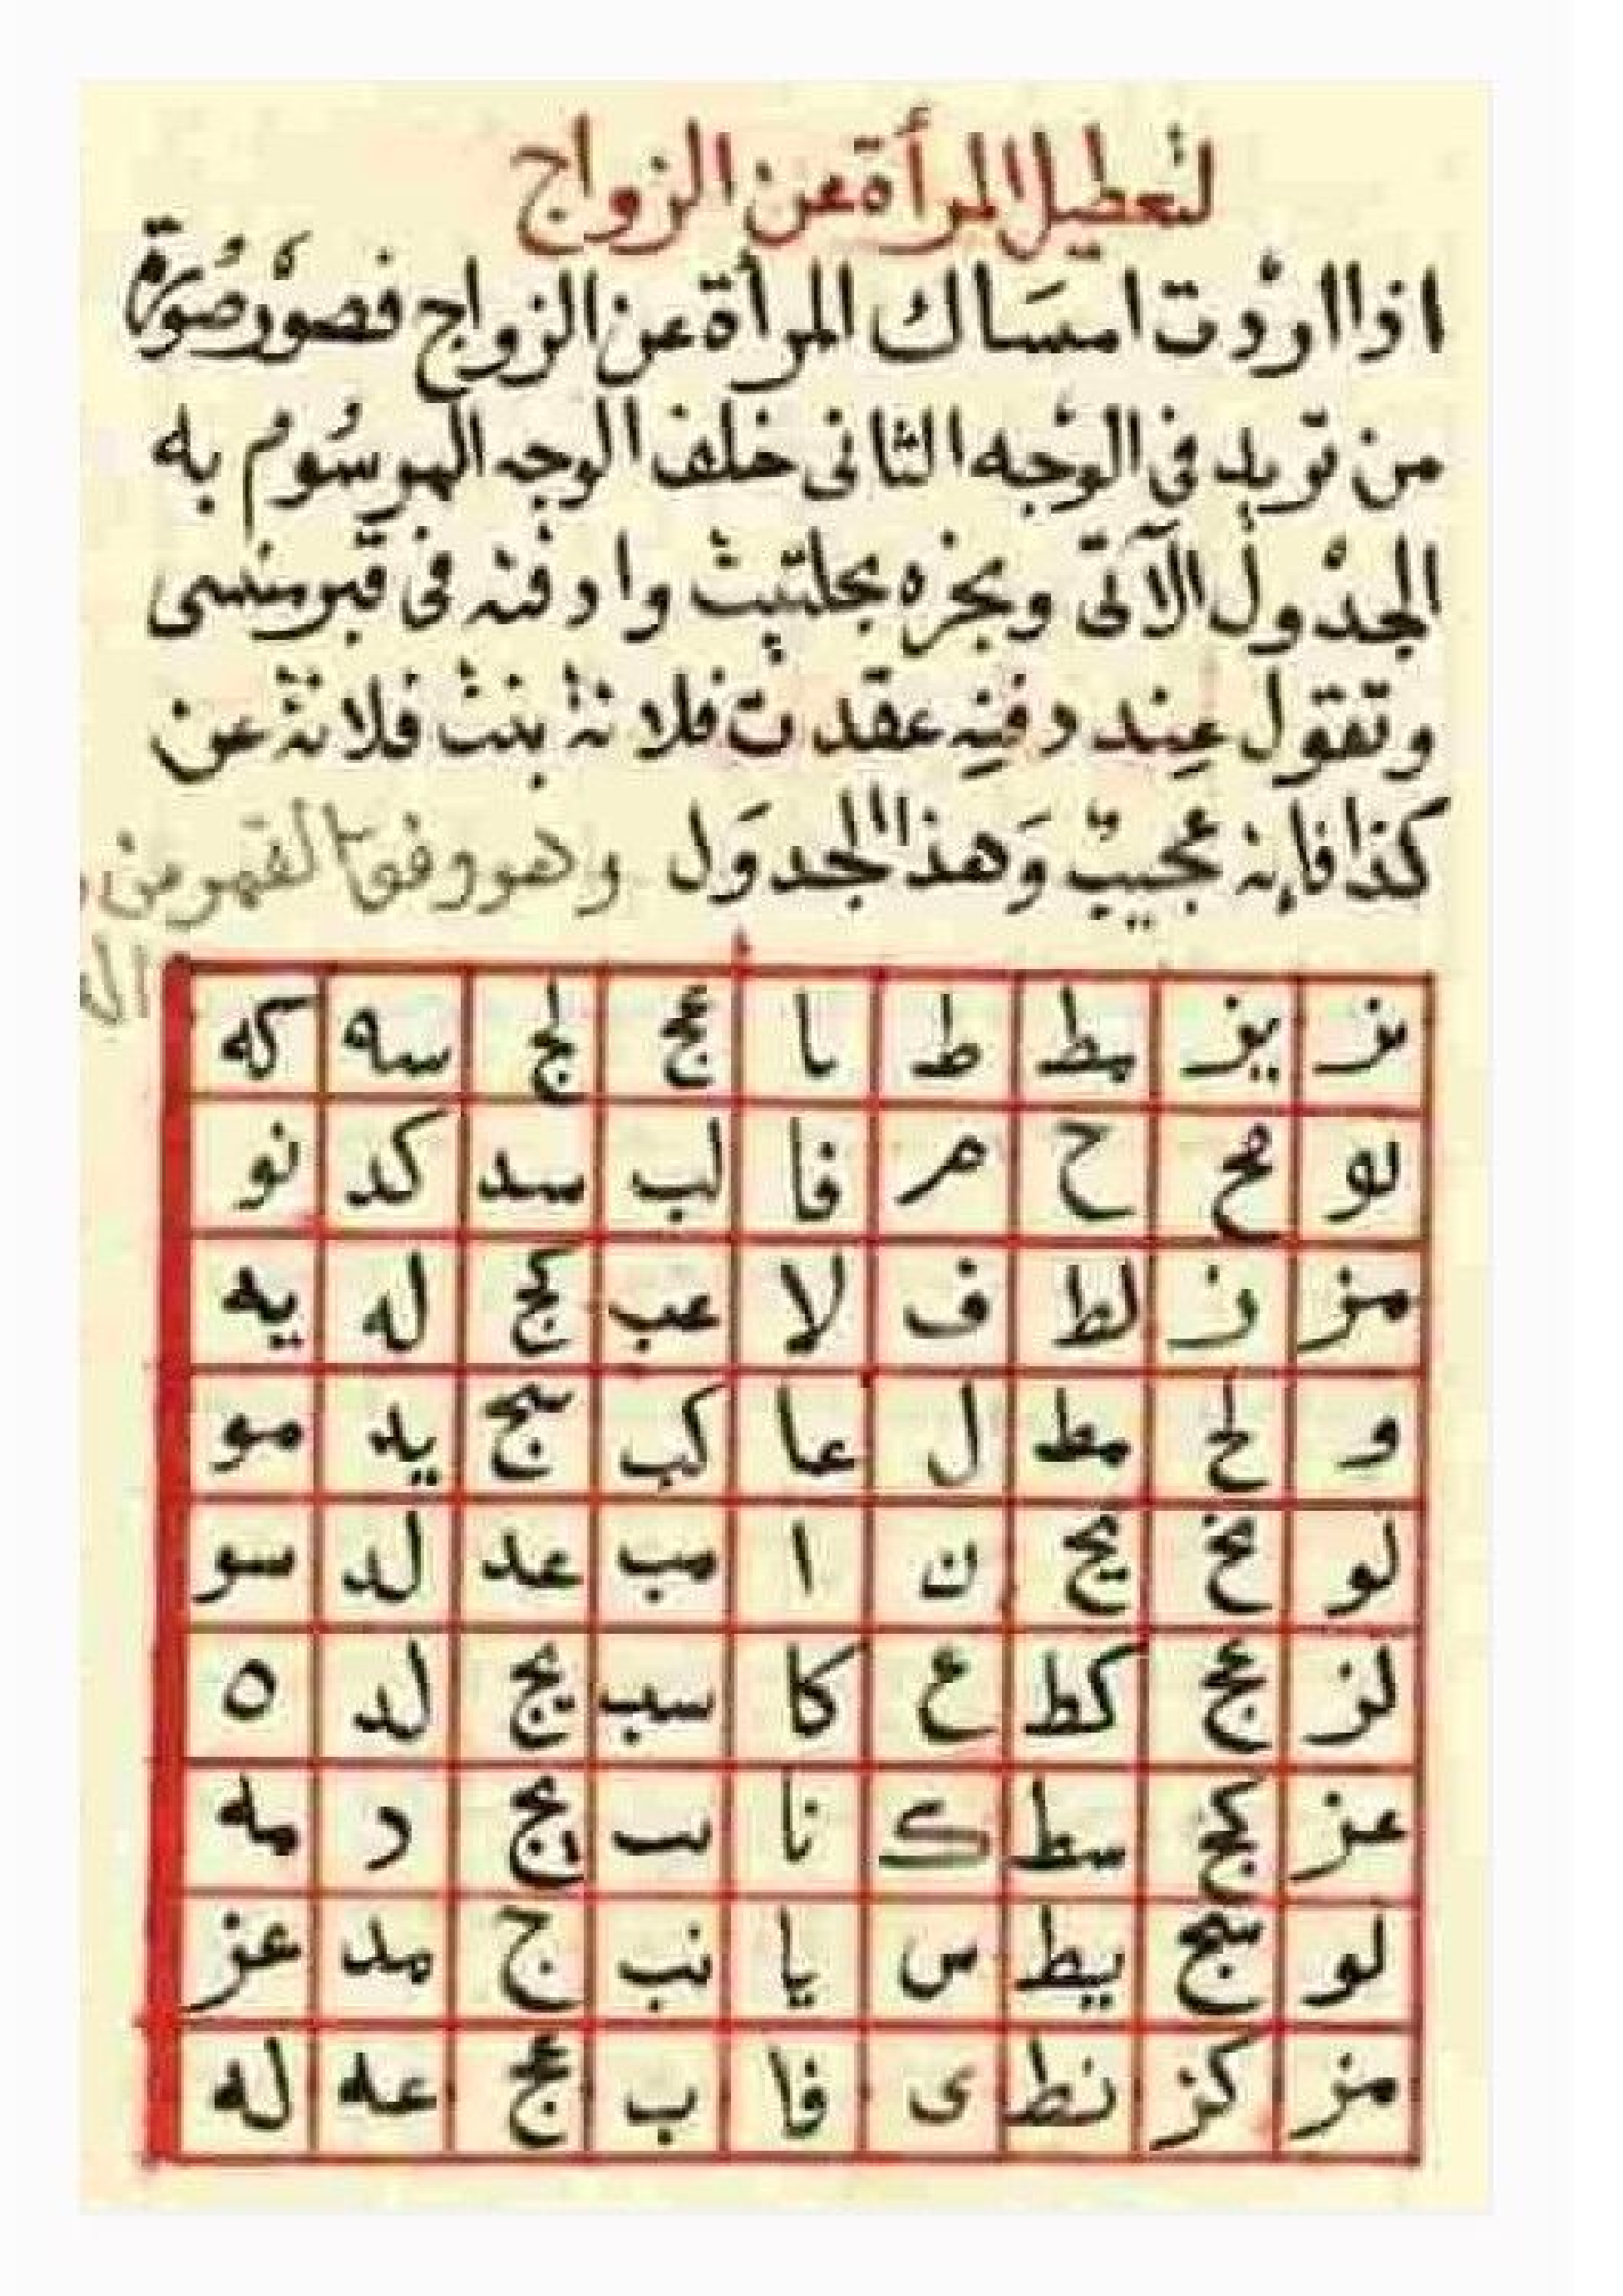 لتعطيل المرأة عن الزواج
اذا اردت امسَاك المرأة عن الزواج فصوّر صُورة
من تريد فى الوجه الثانى خلف الوجه المرسُوم به
الجدول الآتى وبخره بحلتيت وادفنه فى قبر منسى
وتقول عِند دفنِه عقدت فلانة بنت فلانة عن
كذا فإنه عجيبٌ وَهذا الجدوَل وهو وفق القمر من
نز يز مط ط يا عج لج سه كه
لو مح ح م فا لب سد كد نو
مز ز لط ف لا عب كج له يه
و لح مط ل عا كب سج يد مو
لو يح ن ا مب عد لد سو
لز عج كط ع كا سب يج لد ه
عز كج سط ك نا يج د مه
لو سج يط س يا نب ج مد عز
مز كز نط ى فا ب عج عه له